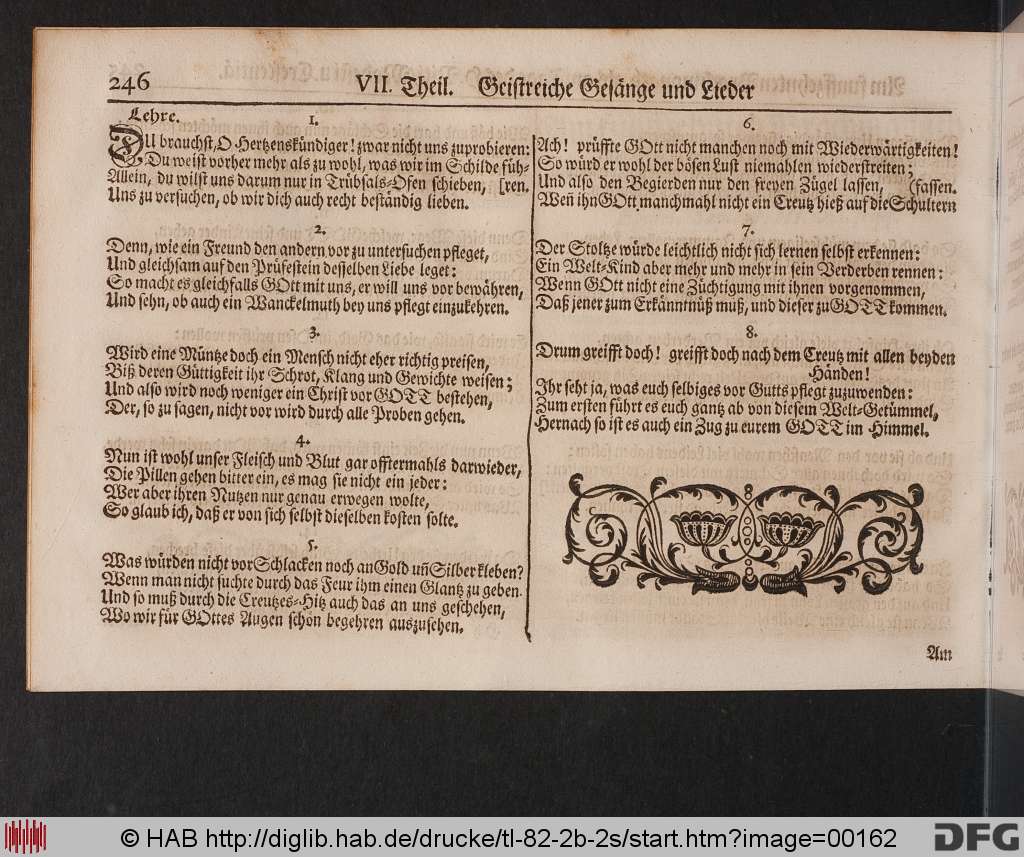 246
VII. Theil. Geistreiche Gesänge und Lieder
Lehre.
1.
DU brauchst, O Hertzenskündiger! zwar nicht uns zuprobieren:
Du weist vorher mehr als zu wohl, was wir im Schilde füh-
Allein, du wilst uns darum nur in Trübsals-Ofen schieben, [ren.
Uns zu versuchen, ob wir dich auch recht beständig lieben.
2.
Denn, wie ein Freund den andern vor zu untersuchen pfleget,
Und gleichsam auf den Prüfestein desselben Liebe leget:
So macht es gleichfals GOtt mit uns, er will uns vor bewähren,
Und sehn, ob auch ein Wanckelmuth bey uns pflegt einzukehren.
3.
Wird eine Müntze doch ein Mensch nicht eher richtig preisen,
Biß deren Güttigkeit ihr Schrot, Klang und Gewichte weisen;
Und also wird noch weniger ein Christ vor GOTT bestehen,
Der, so zu sagen, nicht vor wird durch alle Proben gehen.
4.
Nun ist wohl unser Fleisch und Blut gar offtermahls darwieder,
Die Pillen gehen bitter ein, es mag sie nicht ein jeder:
Wer aber ihren Nutzen nur genau erwegen wolte,
So glaub ich, daß er von sich selbst dieselben kosten solte.
5.
Was würden nicht vor Schlacken noch an Gold uñ Silber kleben?
Wenn man nicht suchte durch das Feur ihm einen Glantz zu geben.
Und so muß durch die Creutzes-Hitz auch das an uns geschehen,
Wo wir für GOttes Augen schön begehren auszusehen.
6.
Ach! prüffte GOtt nicht manchen noch mit Wiederwärtigkeiten!
So würd er wohl der bösen Lust niemahlen wiederstreiten;
Und also den Begierden nur den freyen Zügel lassen, (fassen.
Weñ ihn GOtt manchmahl nicht ein Creutz hieß auf die Schultern
7.
Der Stoltze würde leichtlich nicht sich lernen selbst erkennen:
Ein Welt-Kind aber mehr und mehr in sein Verderben rennen:
Wenn GOtt nicht eine Züchtigung mit ihnen vorgenommen,
Daß jener zum Erkänntnüß muß, und dieser zu GOTT kommen.
8.
Drum greifft doch! greifft doch nach dem Creutz mit allen beyden
Händen!
Ihr seht ja, was euch selbiges vor Gutts pflegt zuzuwenden:
Zum ersten führt es euch gantz ab von diesem Welt-Getümmel,
Hernach so ist es auch ein Zug zu eurem GOTT im Himmel.
Am
© HAB http://diglib.hab.de/drucke/tl-82-2b-2s/start.htm?image=00162
DFG